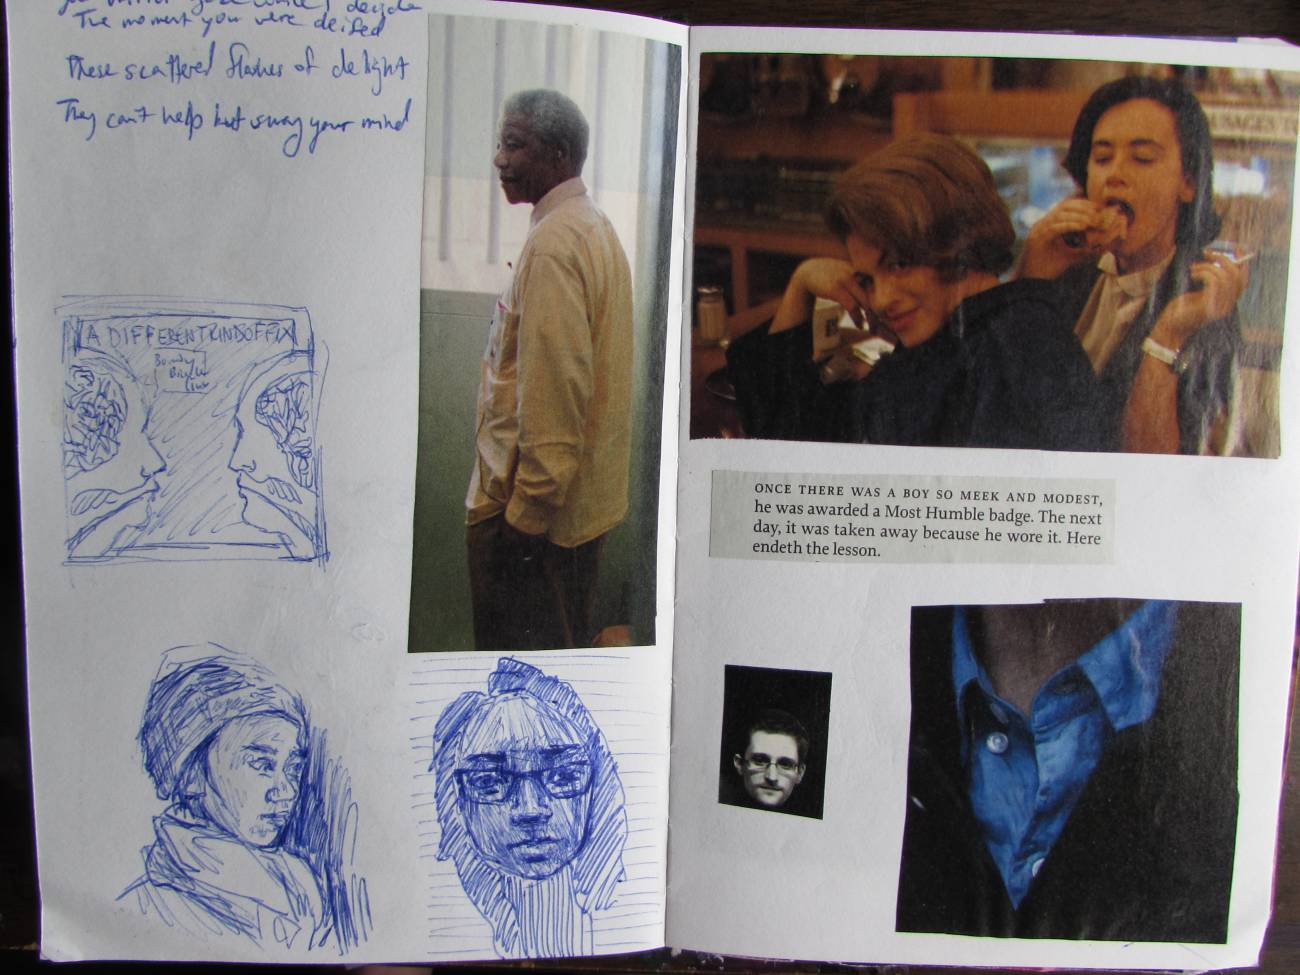 The moment you were deified
These scattered flashes of delight
They can't help but sway your mind
A DIFFERENT KIND OF FIX
ONCE THERE WAS A BOY SO MEEK AND MODEST,
he was awarded a Most Humble badge. The next
day, it was taken away because he wore it. Here
endeth the lesson.